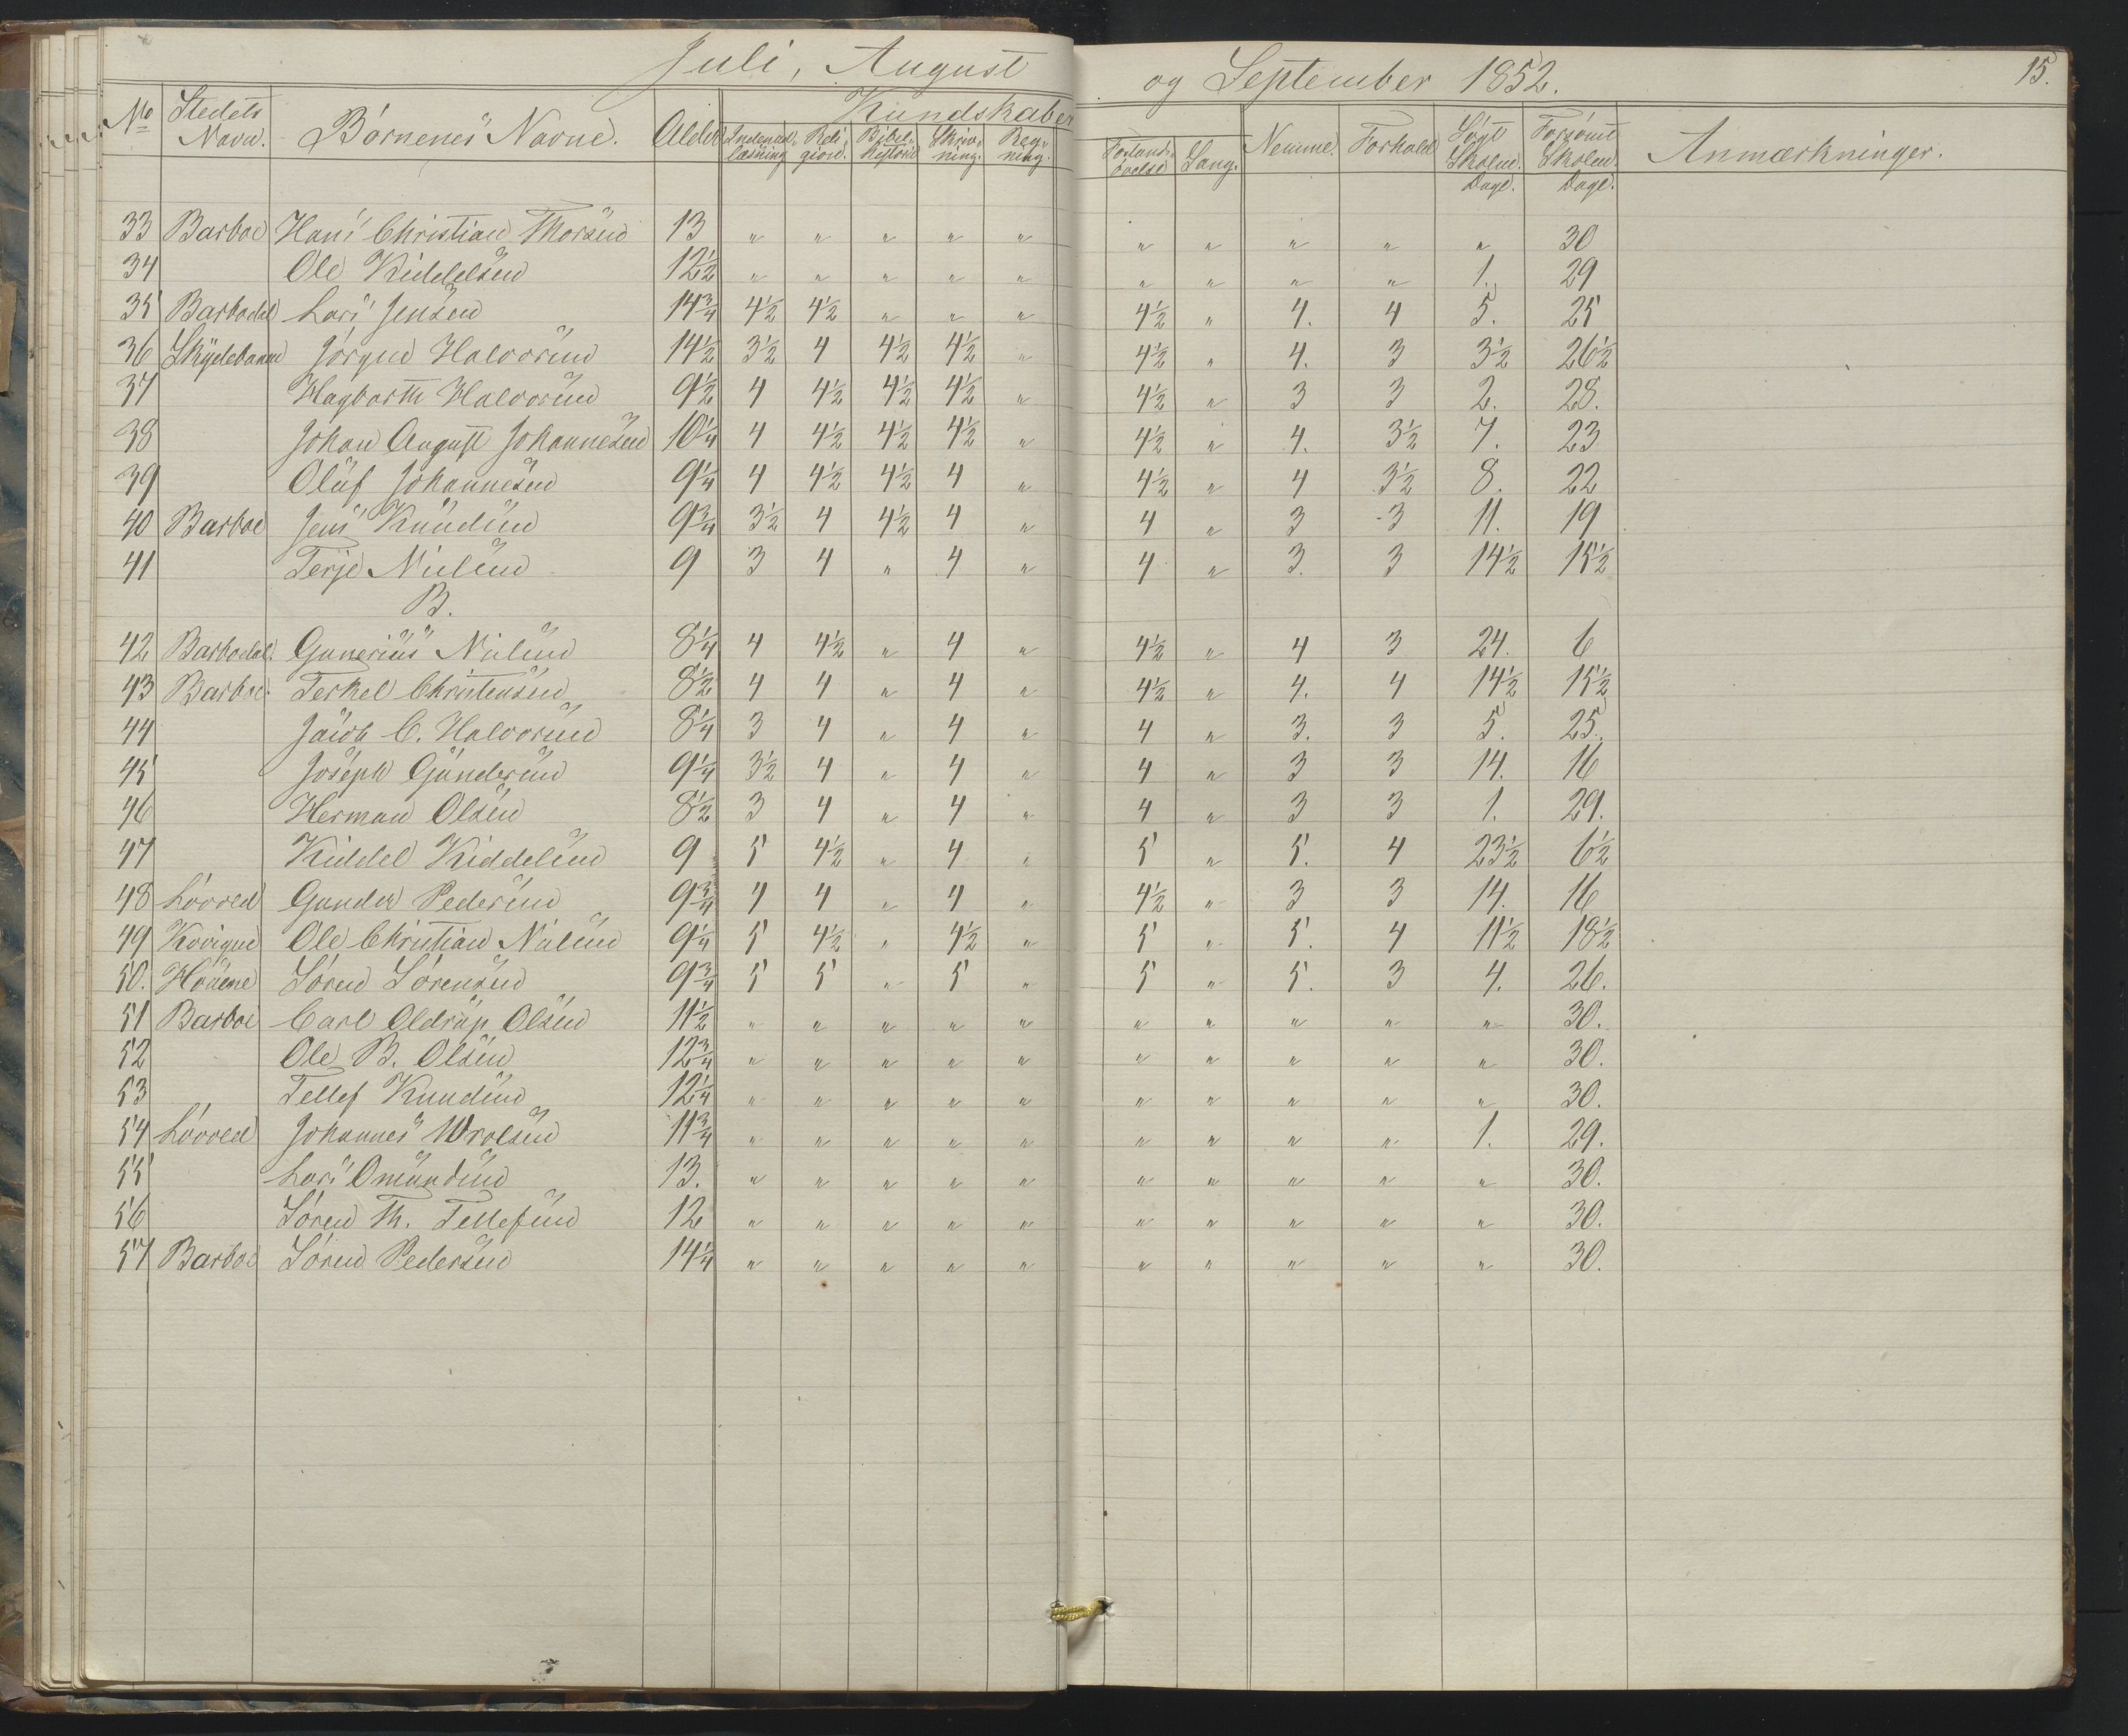 Juli, August og September 1852. 15.
No Stedets Navn. Børnenes Navne. Alder Kundskaber Nemme. Forhold Søgt Skolen. Dage. Forsømt Skolen Dage. Anmærkninger.
Indenad-læsning Reli-gion. Bibel-historie Skriv-ning. Reg-ning. Forstand-øvelse Sang.
33 Barboe Hans Christian Thorsen 13 " " " " " " " " " " 30
34 Ole Kiddelsen 12½ " " " " " " " " " 1. 29
35 Barbodal Lars Jensen 14¾ 4½ 4½ " " " 4½ " 4. 4 5. 25
36 Skydebanen Jørgen Halvorsen 14½ 3½ 4 4½ 4½ " 4½ " 4. 3 3½ 26½
37 Hagbarth Halvorsen 9½ 4 4½ 4½ 4½ " 4½ " 3 3 2. 28.
38 Johan August Johannesen 10¼ 4 4½ 4½ 4½ " 4½ " 4. 3½ 7. 23
39 Oluf Johannesen 9¼ 4 4½ 4½ 4 " 4½ " 4 3½ 8. 22
40 Barboe Jens Knudsen 9¾ 3½ 4 4½ 4 " 4 " 3 3 11. 19
41 Terje Nielsen 9 3 4 " 4 " 4 " 3. 3 14½ 15½
B.
42 Barbodal. Gunerius Nielsen 8¼ 4 4½ " 4 " 4½ " 4 3 24. 6
43 Barboe. Terkel Christensen 8½ 4 4 " 4 " 4½ " 4. 4 14½ 15½
44 Jacob C. Halvorsen 8¼ 3 4 " 4 " 4 " 3. 3 5. 25.
45 Joseph Gundersen 9¼ 3½ 4 " 4 " 4 " 3 3 14. 16
46 Herman Olsen 8½ 3 4 " 4 " 4 " 3 3 1. 29.
47 Kiddel Kiddelsen 9 5 4½ " 4 " 5 " 5. 4 23½ 6½
48 Løvved Gunder Pedersen 9¾ 4 4 " 4 " 4½ " 3 3 14. 16
49 Ole Christian Nielsen 9¼ 5 4½ " 4½ " 5 " 5. 4 11½ 18½
50. Søren Sørensen 9¾ 5 5 " 5 " 5 " 5. 3 4. 26.
51 Barboe Carl Oldrup Olsen 11½ " " " " " " " " " " 30.
52 Ole B. Olsen 12¾ " " " " " " " " " " 30.
53 Tellef Knudsen 12¼ " " " " " " " " " " 30.
54 Løvved Johannes Wrolsen 11¾ " " " " " " " " " 1. 29.
55 Lars Omundsen 13. " " " " " " " " " " 30.
56 Søren Th. Tellefsen 12 " " " " " " " " " " 30.
57 Barboe Søren Pedersen 14¼ " " " " " " " " " " 30.